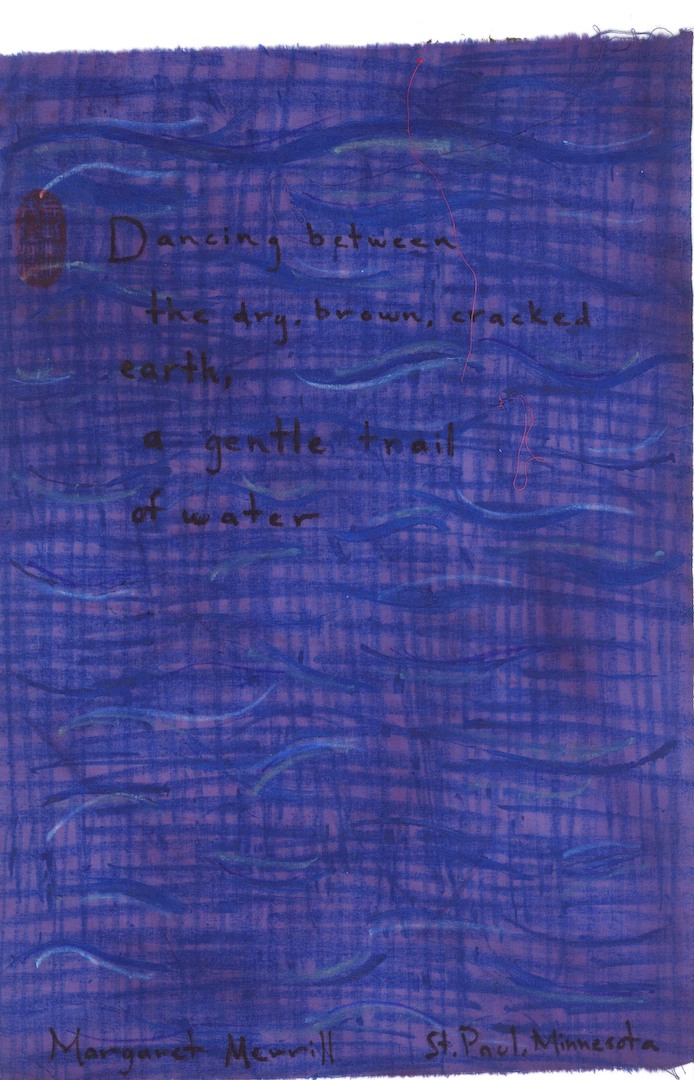 Dancing between
the dry, brown, cracked
earth,
a gentle trail
of water
Margaret Merrill St. Paul, Minnesota